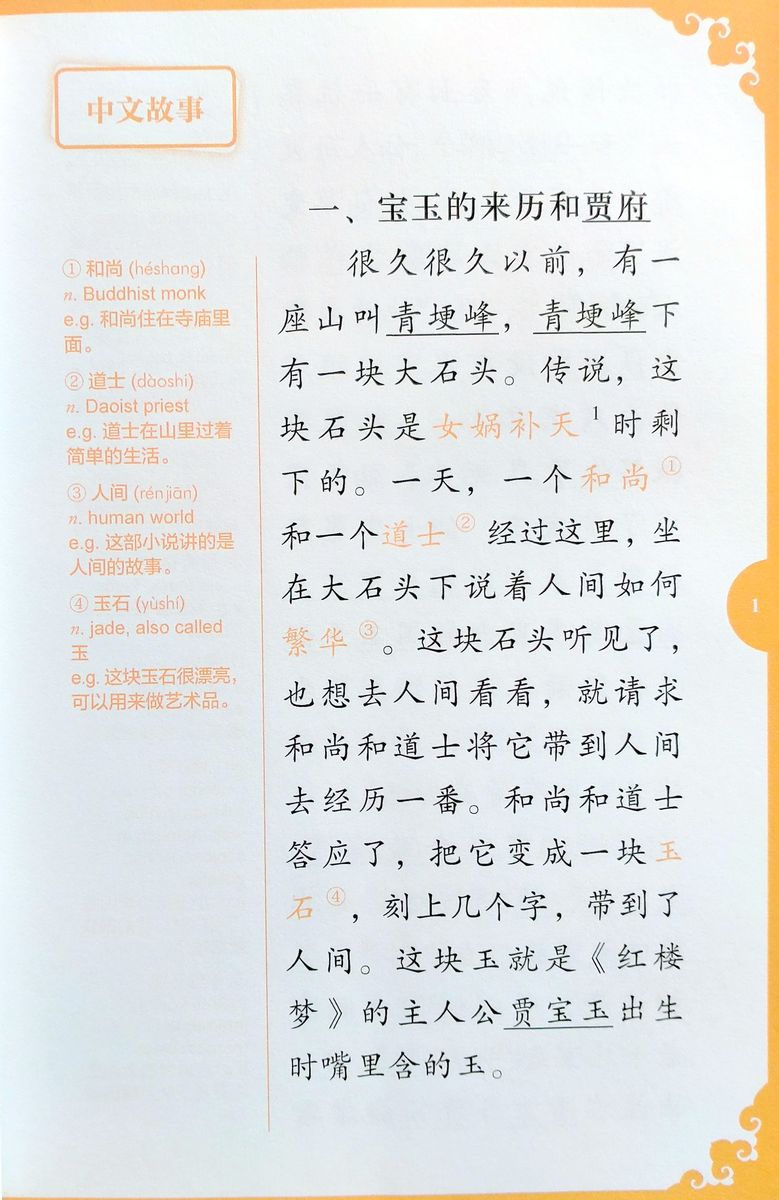 中文故事
一、宝玉的来历和贾府
很久很久以前，有一
座山叫青埂峰，青埂峰下
有一块大石头。传说，这
块石头是女娲补天1时剩
下的。一天，一个和尚①
和一个道士②经过这里，坐
在大石头下说着人间如何
繁华③。这块石头听见了，
也想去人间看看，就请求
和尚和道士将它带到人间
去经历一番。和尚和道士
答应了，把它变成一块玉
石④，刻上几个字，带到了
人间。这块玉就是《红楼
梦》的主人公贾宝玉出生
时嘴里含的玉。
① 和尚 (héshang)
n. Buddhist monk
e.g. 和尚住在寺庙里
面。
② 道士 (dàoshi)
n. Daoist priest
e.g. 道士在山里过着
简单的生活。
③ 人间 (rénjiān)
n. human world
e.g. 这部小说讲的是
人间的故事。
④ 玉石 (yùshí)
n. jade, also called
玉
e.g. 这块玉石很漂亮，
可以用来做艺术品。
1